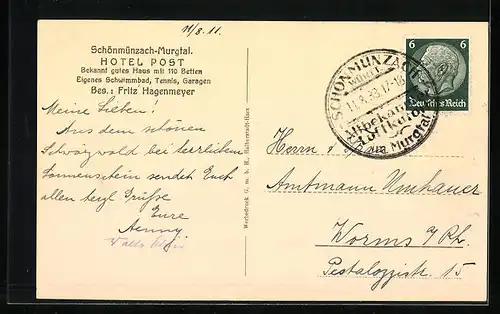 11/8.11.
Schönmünzach-Murgtal.
HOTEL POST
Bekannt gutes Haus mit 110 Betten
Eigenes Schwimmbad, Tennis, Garagen
Bes.: Fritz Hagenmeyer
Meine Lieben!
Aus dem schönen
Schwarzwald bei herrlichem
Sonnenschein sendet Euch
allen hrzl. Grüße
Eure
Aenny
Werbedruck G. m. b. H., Halberstadt-Harz
SCHÖNMÜNZACH
17-18
Altbekannter
Luftkurort
im Murgtal
6 6
Deutsches Reich
Herrn u. Frau
Amtmann Umhauer
Worms a/Rh.
Pestalozzistr. 15